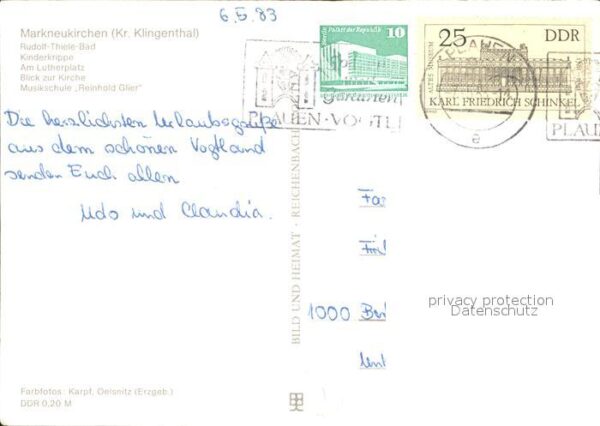 6.5.83
Markneukirchen (Kr. Klingenthal)
Rudolf-Thiele-Bad
Kinderkrippe
Am Lutherplatz
Blick zur Kirche
Musikschule „Reinhold Glier"
Berlin, Palast der Republik
10
25 DDR
ALTES MUSEUM
KARL FRIEDRICH SCHINKEL
PLAUEN
gardinen
PLAUEN·VOGTL
e
PLAUE
Die herzlichsten Urlaubsgrüße
aus dem schönen Vogtland
senden Euch allen
Udo und Claudia.
BILD UND HEIMAT · REICHENBACH
Fa
1000 Be
Unt
privacy protection
Datenschutz
Farbfotos: Karpf, Oelsnitz (Erzgeb.)
DDR 0,20 M